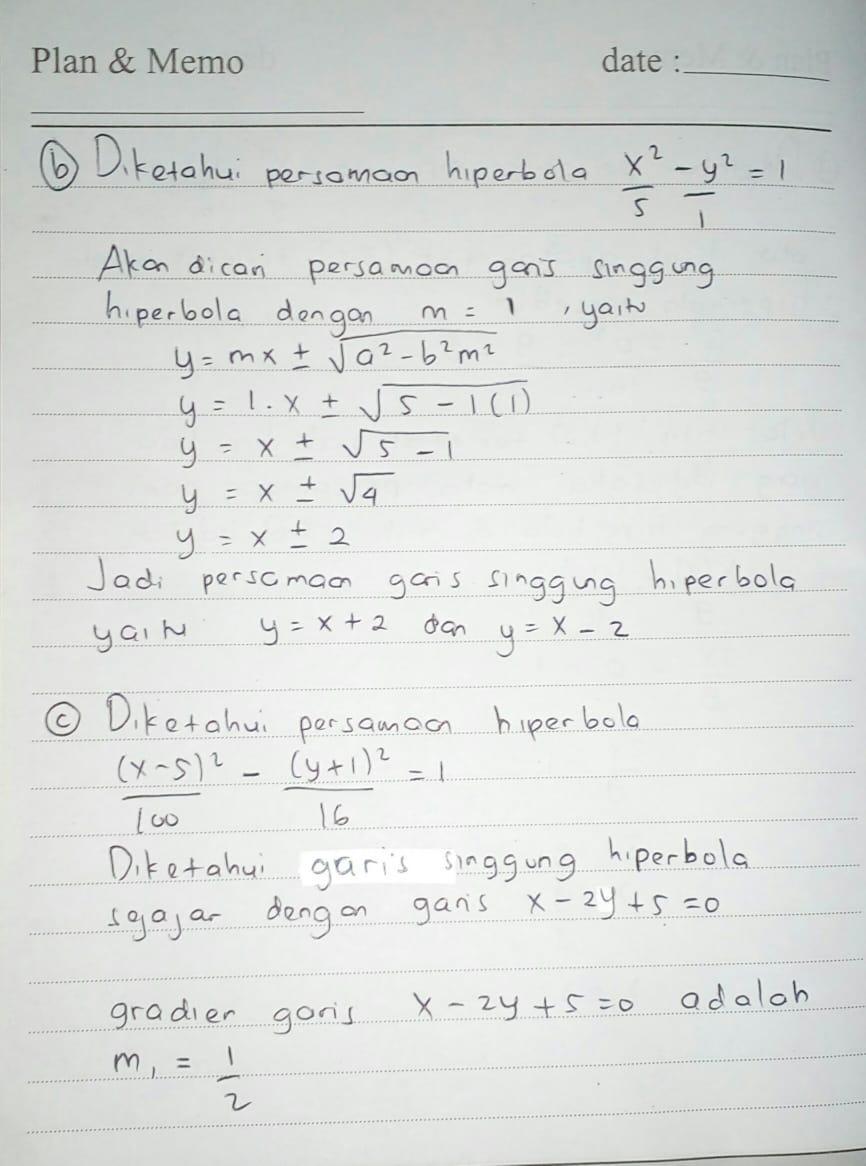 Plan & Memo date :
ⓑ Diketahui persamaan hiperbola x²/5 - y²/1 = 1
Akan dicari persamaan garis singgung
hiperbola dengan m = 1 , yaitu
y = mx ± √(a² - b²m²)
y = 1 . x ± √(5 - 1(1))
y = x ± √(5 - 1)
y = x ± √4
y = x ± 2
Jadi persamaan garis singgung hiperbola
yaitu y = x + 2 dan y = x - 2
ⓒ Diketahui persamaan hiperbola
(x-5)²/100 - (y+1)²/16 = 1
Diketahui garis singgung hiperbola
sejajar dengan garis x - 2y + 5 = 0
gradien garis x - 2y + 5 = 0 adalah
m₁ = 1/2